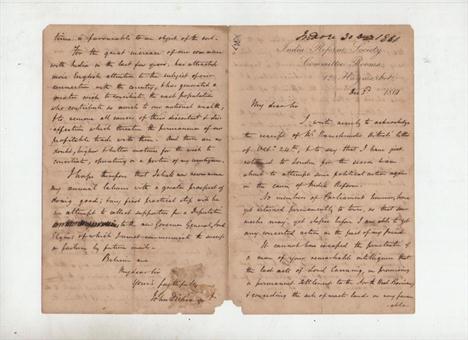 India Reform Society
Committee Rooms
My dear sir
I write merely to acknowledge
the receipt of
letter
of 24th, & to say that I have just
returned to London for the season &
about to attempt some political action again
in the cause of Indian Reform.
No members of Parliament however, have
yet returned permanently to town, so that some
weeks may yet elapse before I am able to get
any concerted action on the part of my friends
It cannot have escaped the penetration of
a man of your remarkable intelligence that
the last acts of Lord Canning, in promising
a permanent Settlement to the North West Provinces
& conceding the sale of waste lands on very favour
able
terms is favourable to an object of the sort.
For the great increase of our commerce
with India in the last few years, has attracted
more English attention to the subject of our
connection with the country, & has generated a
greater wish to conciliate the vast population
who contribute so much to our national wealth,
& to remove all causes of their discontent & dis-
affection which threaten the permanence of our
profitable trade with them. And there are no
doubt, higher & better motives for the wish to
conciliate, operating on a portion of my countrymen.
I hope therefore that I shall now recommence
my annual labours with a greater prospect of
doing good; & my first practical step will be
an attempt to collect supporters for a Deputation
to the new Governor General, Lord
Elgin; of which I must communicate the success
or failure by future mails.
Believe me
My dear sir
Yours faithfully
John Dickinson